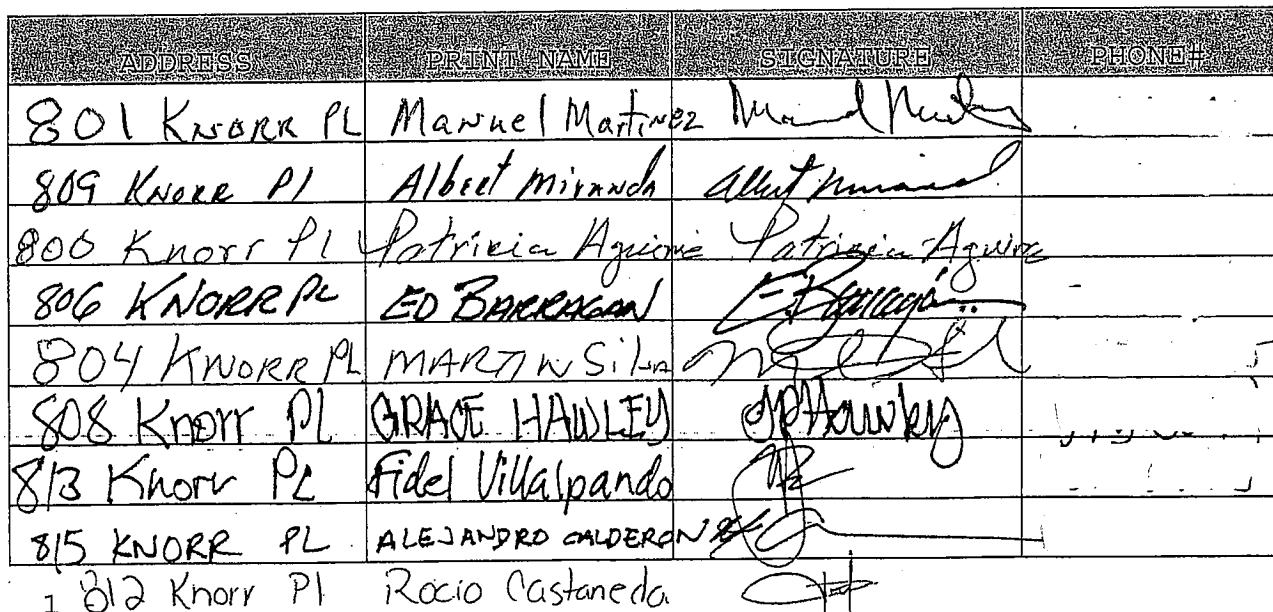 ADDRESS PRINT NAME SIGNATURE PHONE#
801 KNORR PL Manuel Martinez
809 KNORR Pl Albert Miranda Albert Miranda
800 Knorr Pl Patricia Aguirre Patricia Aguirre
806 KNORR PL ED BARRAGAN E. Barragan
804 KNORR PL MARTIN Silva
808 Knorr Pl GRACE HAWLEY GPHawley
813 Knorr PL Fidel Villalpando
815 KNORR PL ALEJANDRO CALDERON
812 Knorr Pl Rocio Castaneda